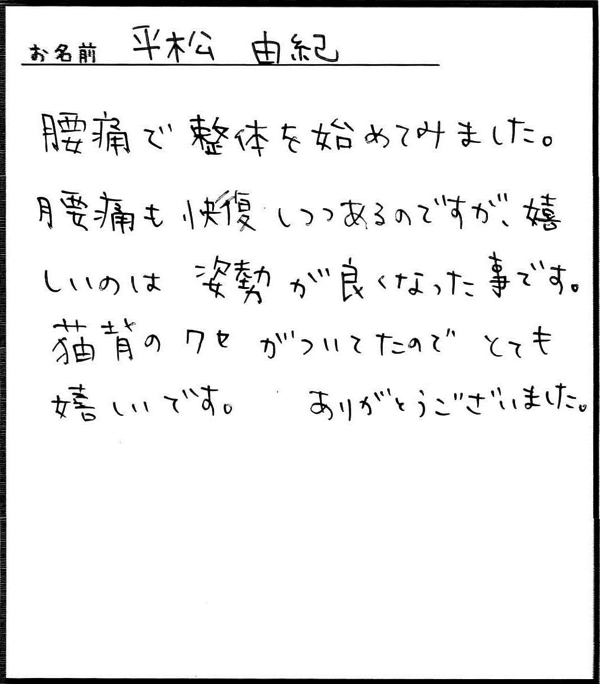 お名前 平松 由紀
腰痛で整体を始めてみました。
腰痛も快復しつつあるのですが、嬉
しいのは 姿勢が良くなった事です。
猫背のクセがついてたのでとても
嬉しいです。 ありがとうございました。